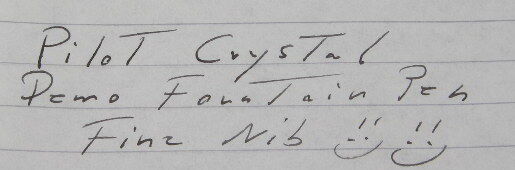 Pilot Crystal
Demo Fountain Pen
Fine Nib